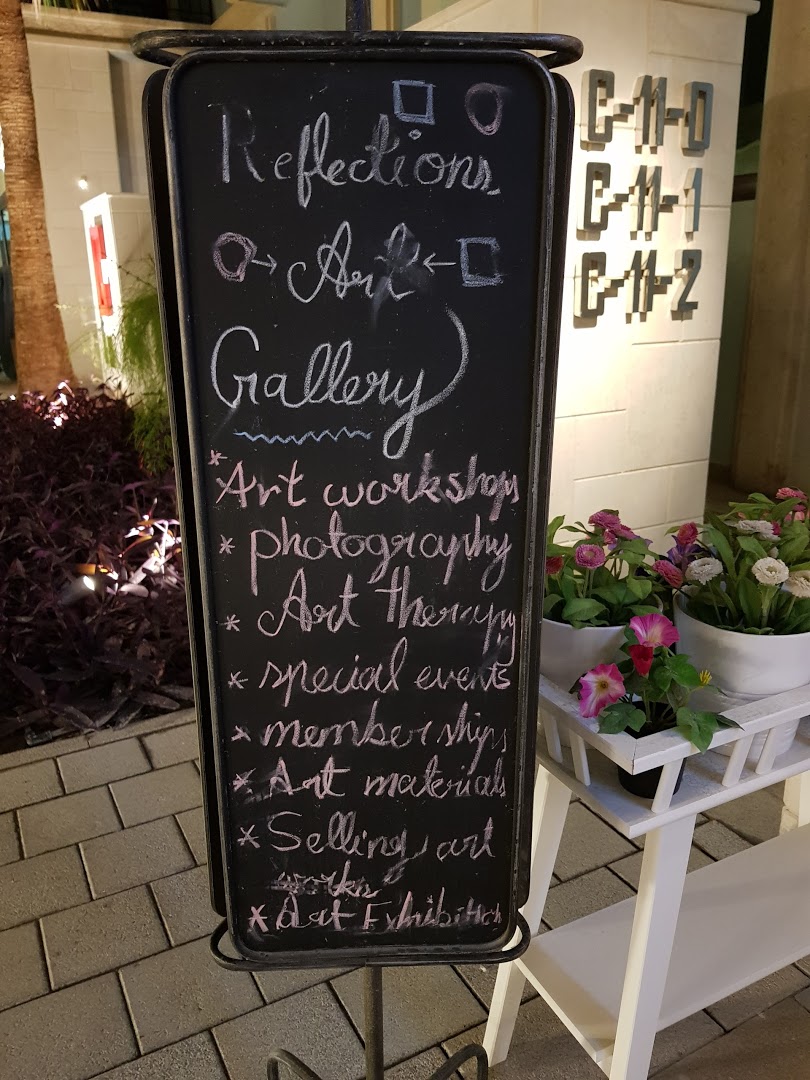 Reflections
Art
Gallery
* Art workshops
* photography
* Art therapy
* special events
* memberships
* Art materials
* Selling art
works
* Art Exhibition
C-11-0
C-11-1
C-11-2